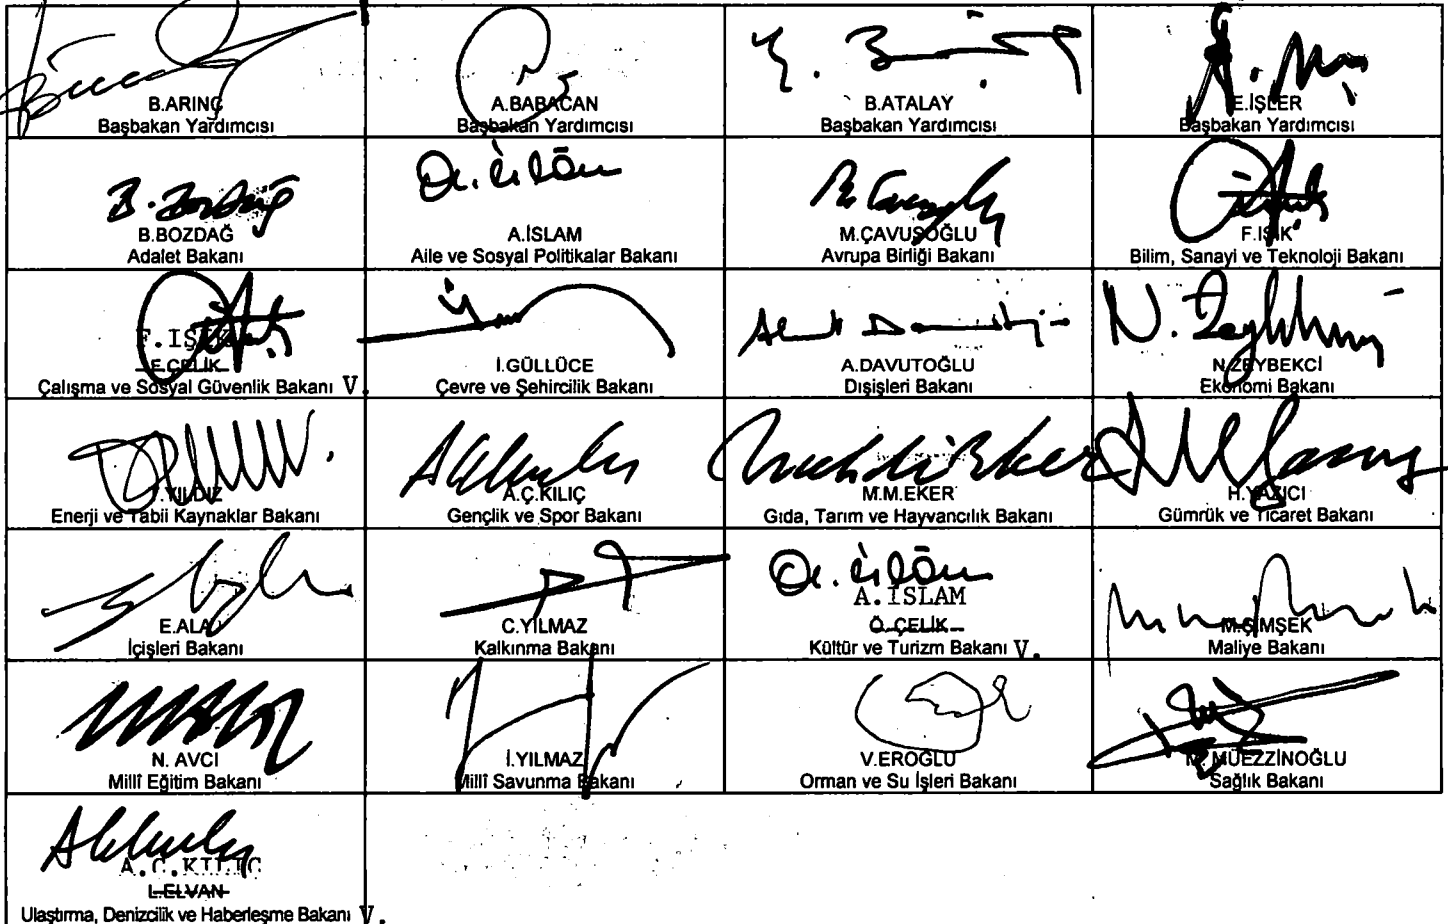 B.ARINÇ
Başbakan Yardımcısı
A.BABACAN
Başbakan Yardımcısı
B.ATALAY
Başbakan Yardımcısı
E.İŞLER
Başbakan Yardımcısı
B. Bozdağ
B.BOZDAĞ
Adalet Bakanı
A.İSLAM
Aile ve Sosyal Politikalar Bakanı
M.ÇAVUŞOĞLU
Avrupa Birliği Bakanı
F.IŞIK
Bilim, Sanayi ve Teknoloji Bakanı
F.IŞIK
F.ÇELİK
Çalışma ve Sosyal Güvenlik Bakanı V.
İ.GÜLLÜCE
Çevre ve Şehircilik Bakanı
A.DAVUTOĞLU
Dışişleri Bakanı
N. Zeybekci
N.ZEYBEKCİ
Ekonomi Bakanı
T.YILDIZ
Enerji ve Tabii Kaynaklar Bakanı
A.Ç.KILIÇ
Gençlik ve Spor Bakanı
M.M.EKER
Gıda, Tarım ve Hayvancılık Bakanı
H.YAZICI
Gümrük ve Ticaret Bakanı
E.ALA
İçişleri Bakanı
C.YILMAZ
Kalkınma Bakanı
A.İSLAM
Ö.ÇELİK
Kültür ve Turizm Bakanı V.
M.ŞİMŞEK
Maliye Bakanı
N. AVCI
Millî Eğitim Bakanı
İ.YILMAZ
Millî Savunma Bakanı
V.EROĞLU
Orman ve Su İşleri Bakanı
M. MÜEZZİNOĞLU
Sağlık Bakanı
A.Ç.KILIÇ
L.ELVAN
Ulaştırma, Denizcilik ve Haberleşme Bakanı V.